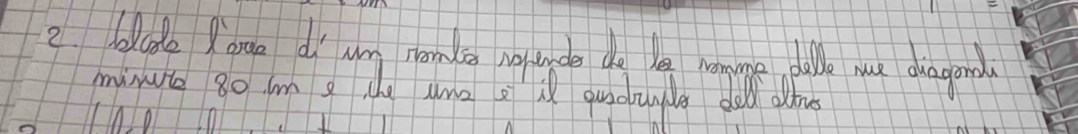 2. Calcola l'area di un rombo sapendo che la somma delle sue diagonali
misura 80 cm e che una è il quadruplo dell'altra